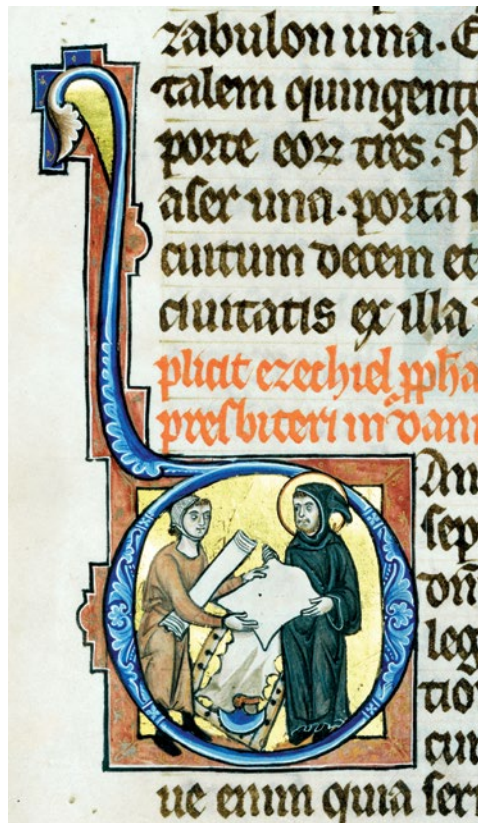 zabulon una. E
talem quingente
porte eoꝝ tres. P
aser una. porta
cuitum decem et
ciuitatis ex illa
plicit ezechiel ꝓpha
presbiteri in dani
An
sep
doñ
leg
tio
cur
ue enim quia seri